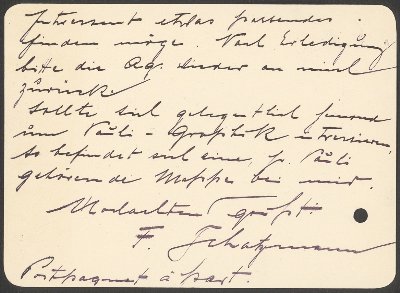 Interessent etwas passendes
finden möge. Nach Erledigung
bitte die Ag. wieder an mich
zurück.
Sollte sich gelegentlich jemand
um Pauli-Graphik interessieren,
so befindet sich eine, Fr. Pauli
gehörende Mappe bei mir.
Hochachtend grüßt:
F. Schatzmann
Postpaquet à part.